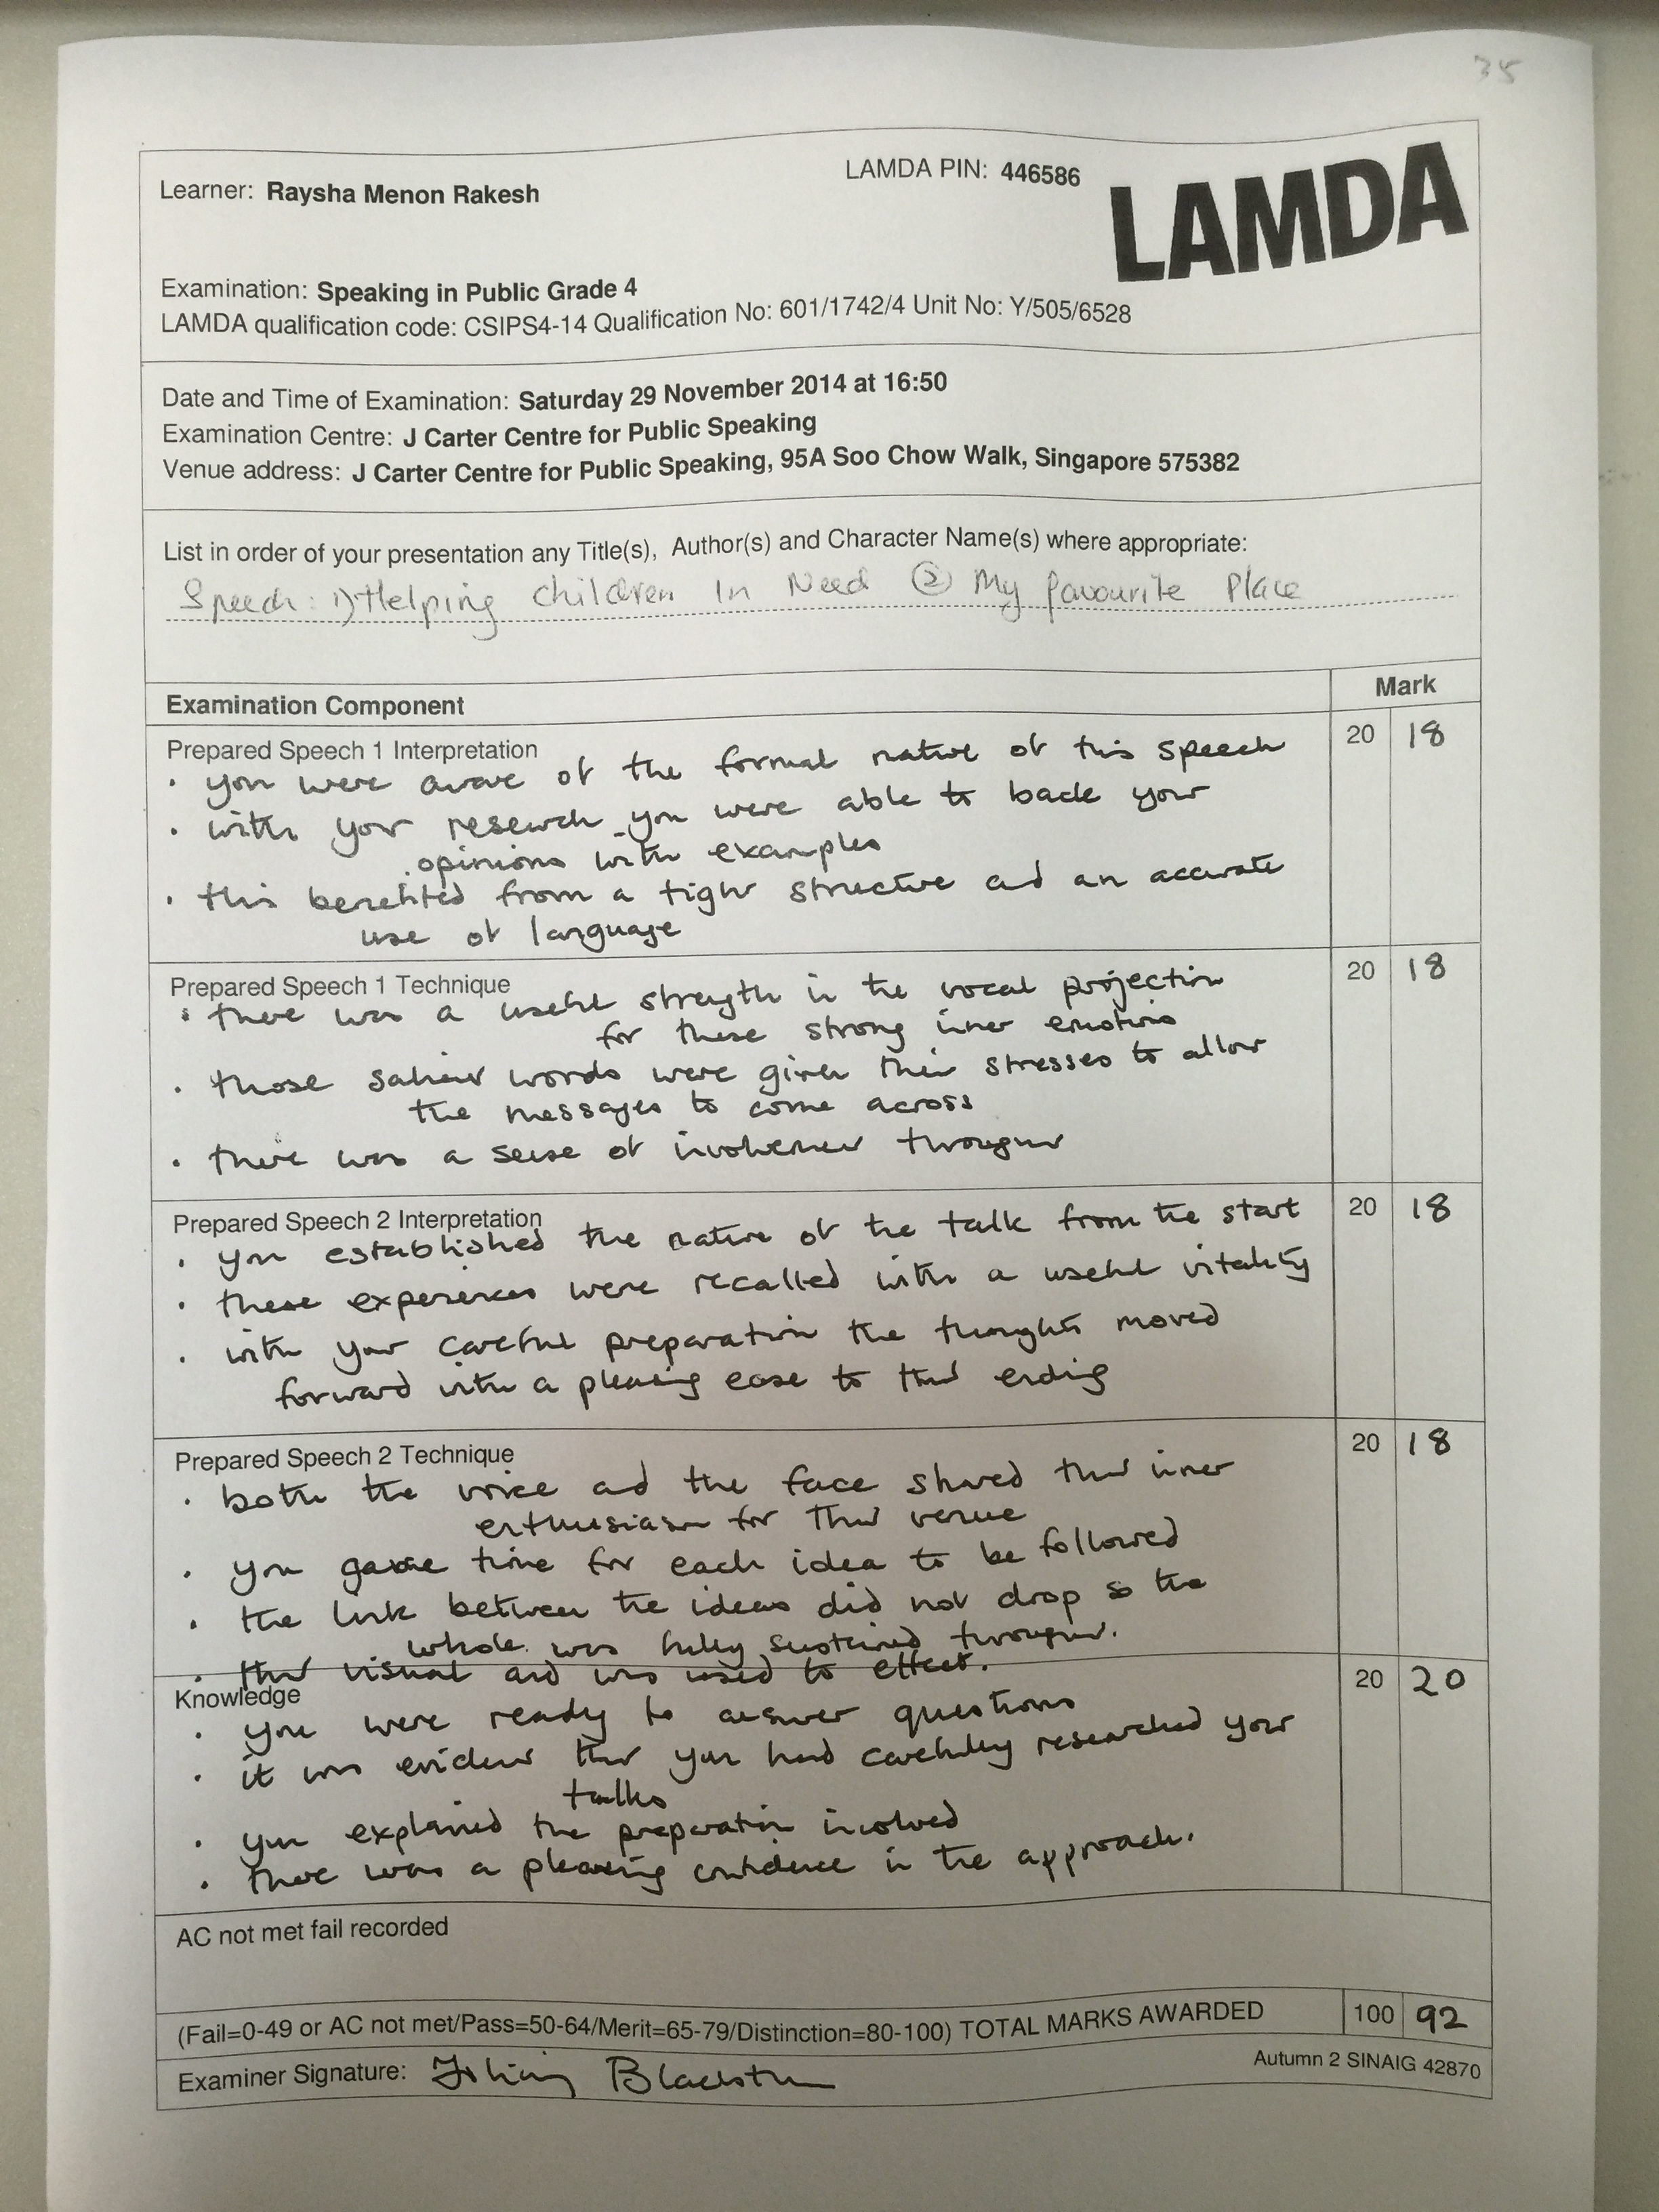 35
Learner: Raysha Menon Rakesh
LAMDA PIN: 446586
LAMDA
Examination: Speaking in Public Grade 4
LAMDA qualification code: CSIPS4-14 Qualification No: 601/1742/4 Unit No: Y/505/6528
Date and Time of Examination: Saturday 29 November 2014 at 16:50
Examination Centre: J Carter Centre for Public Speaking
Venue address: J Carter Centre for Public Speaking, 95A Soo Chow Walk, Singapore 575382
List in order of your presentation any Title(s), Author(s) and Character Name(s) where appropriate:
Speech: 1) Helping Children In Need ② My favourite Place
Examination Component Mark
Prepared Speech 1 Interpretation 20 18
• you were aware of the formal nature of this speech
• with your research you were able to back your
opinions with examples
• this benefited from a tight structure and an accurate
use of language
Prepared Speech 1 Technique 20 18
• there was a useful strength in the vocal projection
for these strong inner emotions
• those salient words were given their stresses to allow
the messages to come across
• there was a sense of involvement throughout
Prepared Speech 2 Interpretation 20 18
• you established the nature of the talk from the start
• these experiences were recalled with a useful vitality
• with your careful preparation the thoughts moved
forward with a pleasing ease to that ending
Prepared Speech 2 Technique 20 18
• both the voice and the face shared that inner
enthusiasm for that venue
• you gave time for each idea to be followed
• the link between the ideas did not drop so the
whole was fully sustained throughout.
• that visual aid was used to effect.
Knowledge 20 20
• you were ready to answer questions
• it was evident that you had carefully researched your
talks
• you explained the preparation involved
• there was a pleasing confidence in the approach.
AC not met fail recorded
(Fail=0-49 or AC not met/Pass=50-64/Merit=65-79/Distinction=80-100) TOTAL MARKS AWARDED 100 92
Examiner Signature:
Autumn 2 SINAIG 42870